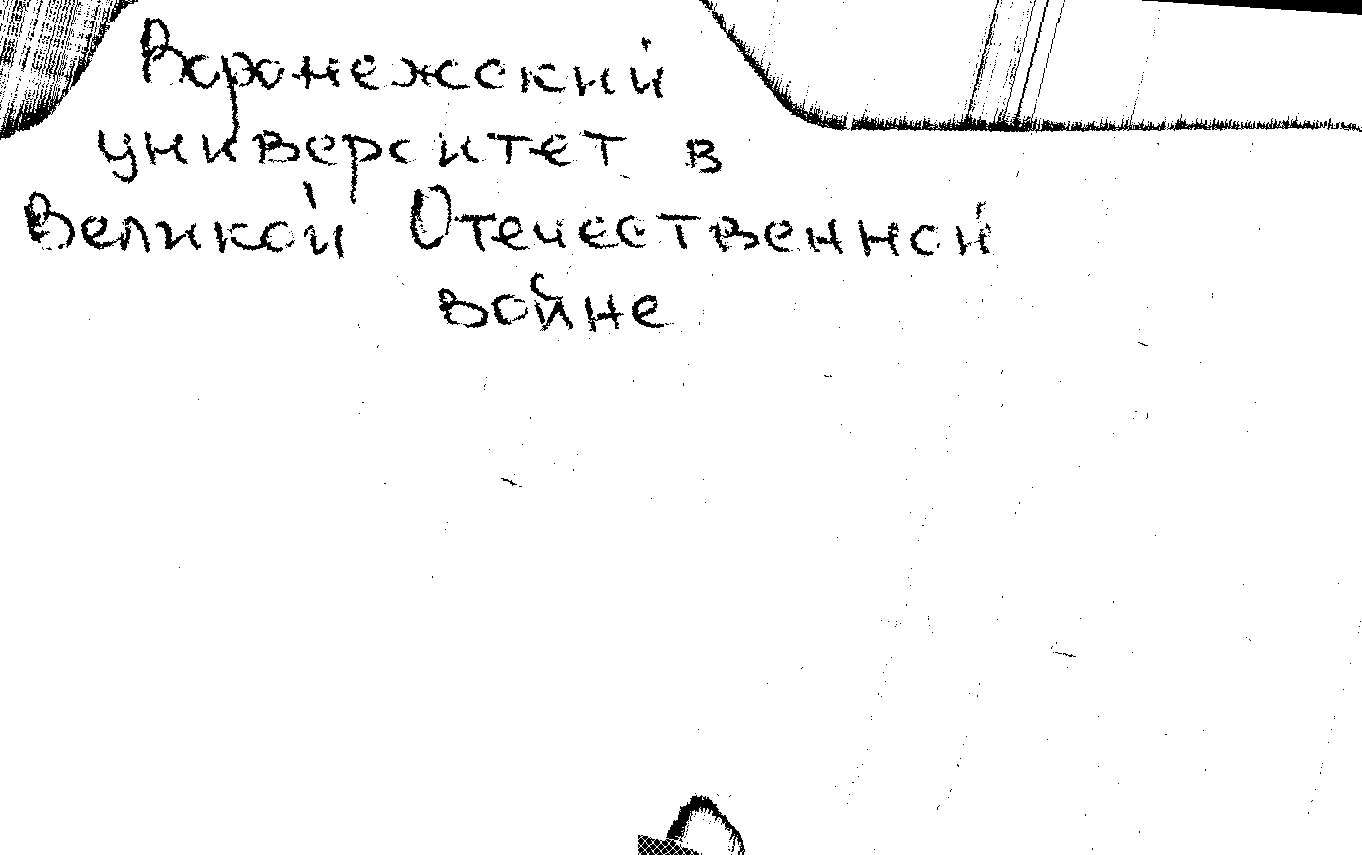 Воронежский
университет в
Великой Отечественной
войне